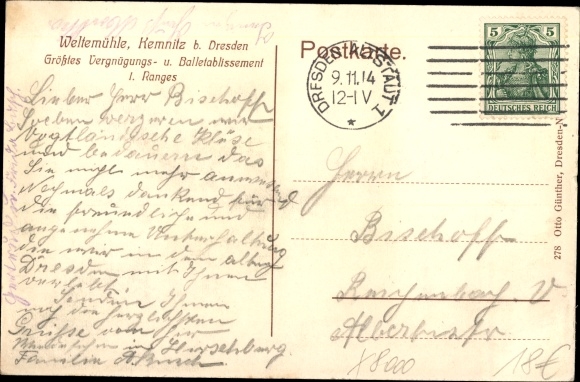 Weltemühle, Kemnitz b. Dresden
Größtes Vergnügungs- u. Balletablissement
I. Ranges
Postkarte.
DRESDEN-ALTST.
9.11.14
12-1 V
*
5 5
DEUTSCHES REICH
Lieber Herr Bischoff
Soeben verzeren wir
Vogtländische Klöse
und bedauern das
Sie nicht mehr
Nochmals dankend für
die freundliche und
angenehme Unterhaltung
die wir in dem alten
Dresden mit Ihnen
verlebt.
Senden Ihnen
noch die herzlichsten
Grüsse vom
in Hirschberg.
Familie
Herrn
Bischoff
Reichenbach. V
Albertistr
278 Otto Günther, Dresden-N
18€